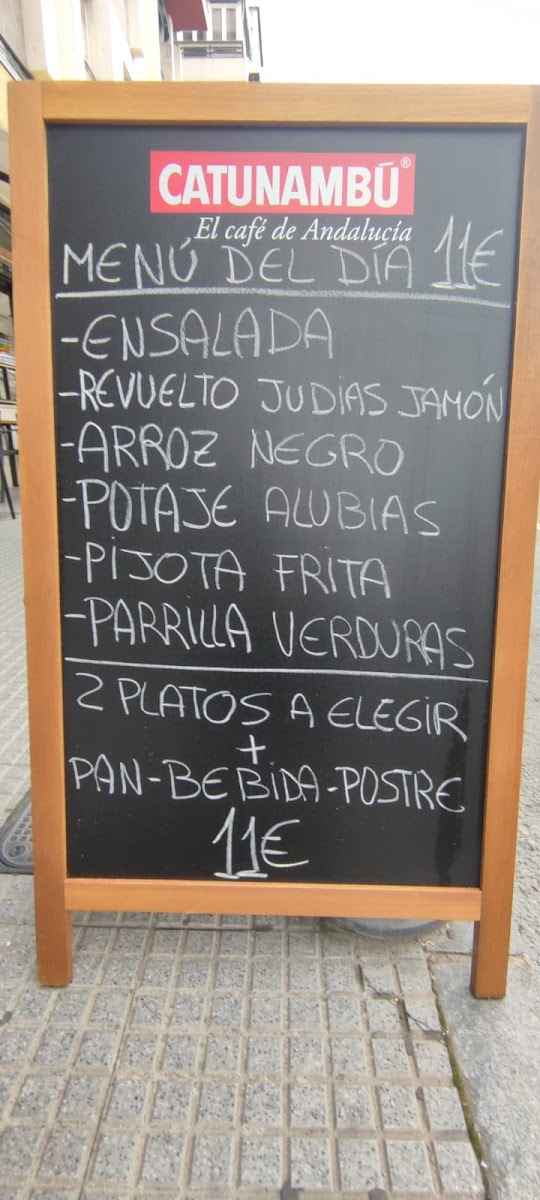 CATUNAMBÚ®
El café de Andalucía
MENÚ DEL DÍA 11€
-ENSALADA
-REVUELTO JUDIAS JAMÓN
-ARROZ NEGRO
-POTAJE ALUBIAS
-PIJOTA FRITA
-PARRILLA VERDURAS
2 PLATOS A ELEGIR
+
PAN-BEBIDA-POSTRE
11€